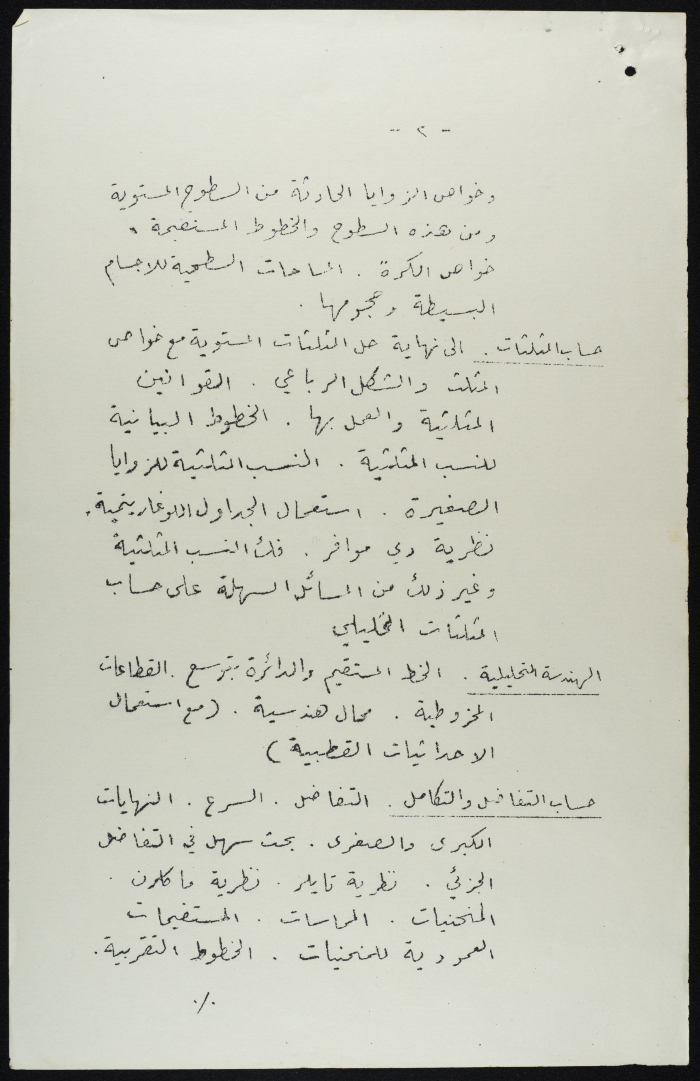 - ٢ -
وخواص الزوايا الحادثة من السطوح المستوية
ومن هذه السطوح والخطوط المستقيمة .
خواص الكرة . المساحات السطحية للاجسام
البسيطة وحجومها .
حساب المثلثات . الى نهاية حل المثلثات المستوية مع خواص
المثلث والشكل الرباعي . القوانين
المثلثية والعمل بها . الخطوط البيانية
للنسب المثلثية . النسب المثلثية للزوايا
الصغيرة . استعمال الجداول اللوغاريتمية .
نظرية دي موافر . فك النسب المثلثية
وغير ذلك من المسائل السهلة على حساب
المثلثات التحليلي
الهندسة التحليلية . الخط المستقيم والدائرة بتوسع . القطاعات
المخروطية . محال هندسية . (مع استعمال
الاحداثيات القطبية)
حساب التفاضل والتكامل . التفاضل . السرع . النهايات
الكبرى والصغرى . بحث سهل في التفاضل
الجزئي . نظرية تايلر . نظرية ماكلرن .
المنحنيات . المماسات . المستقيمات
العمودية للمنحنيات . الخطوط التقربية .
./.